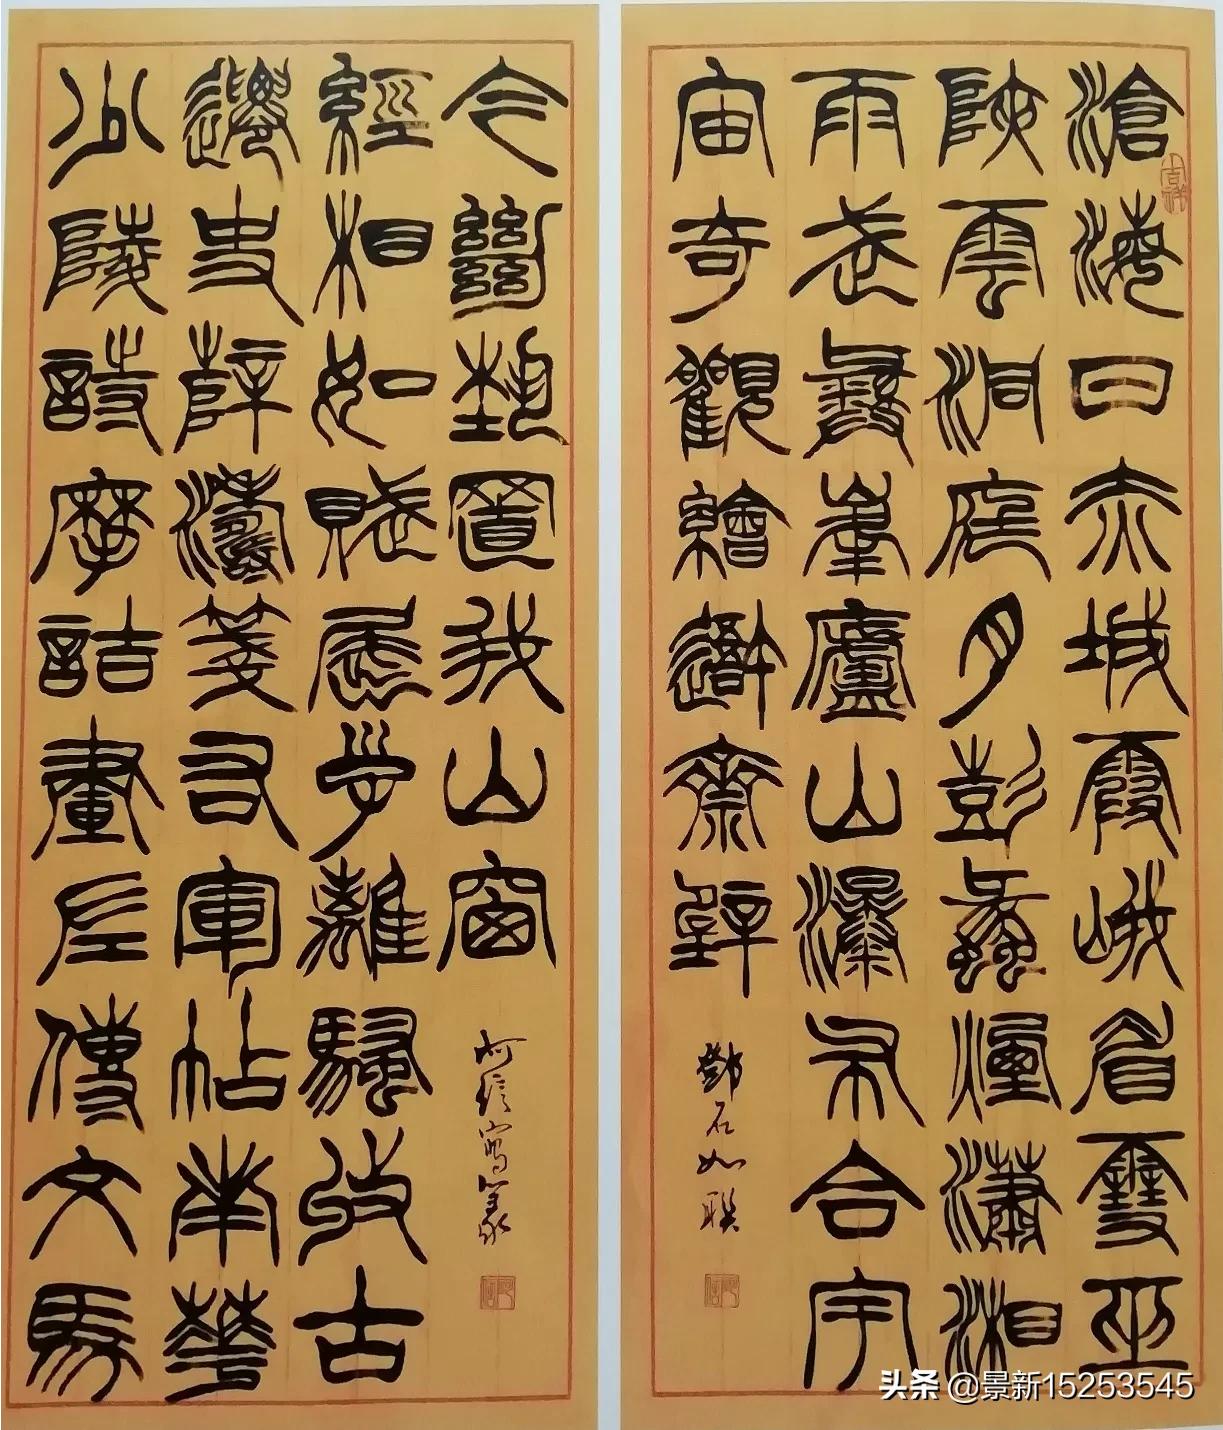 滄海日赤城霞峨眉雪巫
陜雲洞庭月彭蠡煙瀟湘
雨武彝峯廬山瀑布合宇
宙奇觀繪吾齋壁
鄧石如聯
少陵詩摩詰畫左傳文馬
遷史薛濤箋右軍帖南華
經相如賦屈子離騷收古
今絕藝置我山窗
信寫篆
头条 @景新15253545